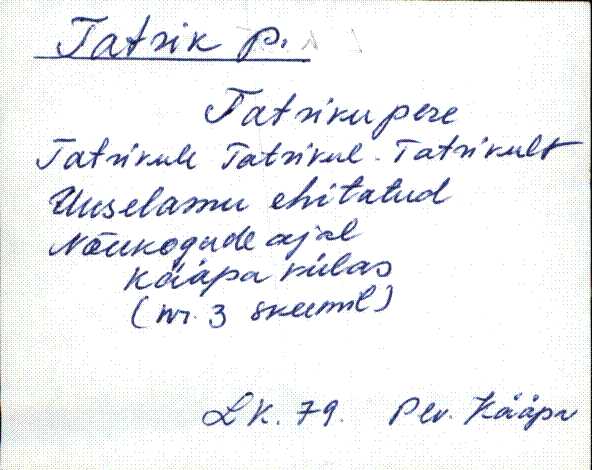 Tatrik p.
Tatriku pere
Tatrikule Tatrikul - Tatrikult
Uuselamu ehitatud
Nõukogude ajal
Kääpa külas
(nr. 3 skeemil)
Lk. 79. Plv. Kääpa